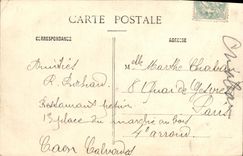 CARTE POSTALE
CORRESPONDANCE
ADRESSE
Amitiés
R.
Restaurant
13 place du marché au bois
Caen Calvados
Mlle Marthe
8 Quai de Gesvres
Paris
4e arrond